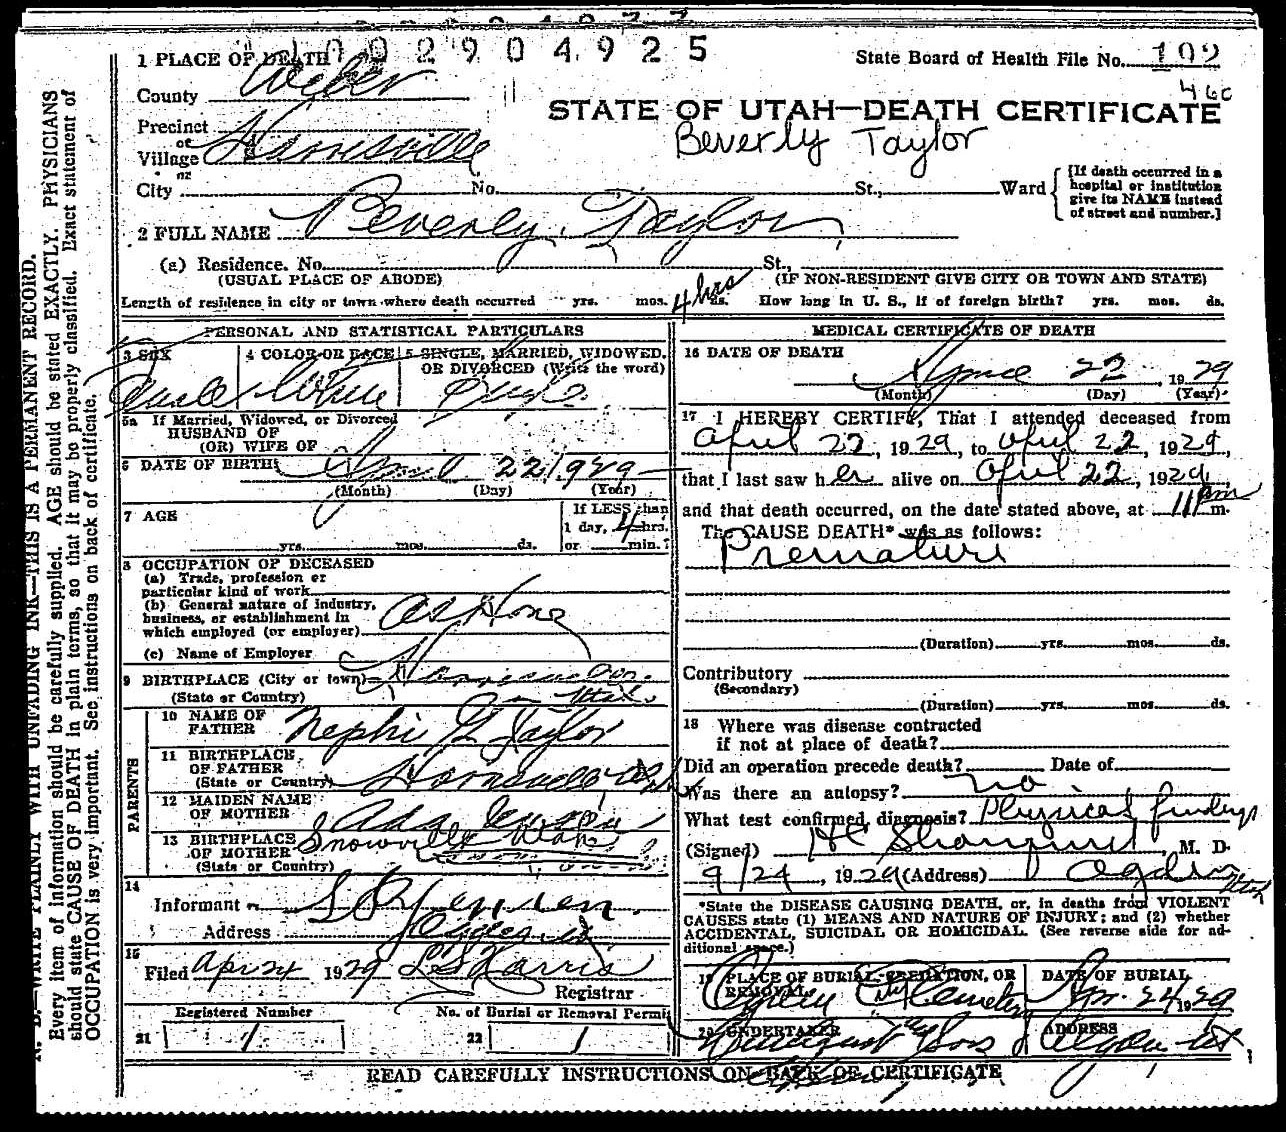 1 0 0 2 9 0 4 9 2 5
1 PLACE OF DEATH
State Board of Health File No. 109
County Weber
460
STATE OF UTAH—DEATH CERTIFICATE
Beverly Taylor
Precinct
or
Village Harrisville
or
City No. St., Ward
[If death occurred in a
hospital or institution
give its NAME instead
of street and number.]
2 FULL NAME Beverly Taylor
(a) Residence. No. St.,
(USUAL PLACE OF ABODE) (IF NON-RESIDENT GIVE CITY OR TOWN AND STATE)
Length of residence in city or town where death occurred yrs. mos. 4 hrs ds. How long in U. S., if of foreign birth? yrs. mos. ds.
PERSONAL AND STATISTICAL PARTICULARS
3 SEX 4 COLOR OR RACE 5 SINGLE, MARRIED, WIDOWED,
OR DIVORCED (Write the word)
White
5a If Married, Widowed, or Divorced
HUSBAND OF
(OR) WIFE OF
6 DATE OF BIRTH April 22 1929
(Month) (Day) (Year)
7 AGE
If LESS than
1 day, 4 hrs.
yrs. mos. ds. or min.?
8 OCCUPATION OF DECEASED
(a) Trade, profession or
particular kind of work
(b) General nature of industry,
business, or establishment in
which employed (or employer) At Home
(c) Name of Employer
9 BIRTHPLACE (City or town)
(State or Country) Utah
PARENTS
10 NAME OF
FATHER Nephi G Taylor
11 BIRTHPLACE
OF FATHER
(State or Country) Harrisville, Utah
12 MAIDEN NAME
OF MOTHER Ada
13 BIRTHPLACE
OF MOTHER
(State or Country) Snowville Utah
14
Informant Jensen
Address Ogden
15
Filed Apr 24 1929 L S Harris
Registrar
Registered Number No. of Burial or Removal Permit
21 1 22 1
MEDICAL CERTIFICATE OF DEATH
16 DATE OF DEATH
April 22 1929
(Month) (Day) (Year)
17 I HEREBY CERTIFY, That I attended deceased from
April 22, 1929, to April 22, 1929,
that I last saw h er alive on April 22, 1929,
and that death occurred, on the date stated above, at 11 pm m.
The CAUSE DEATH* was as follows:
Premature
(Duration) yrs. mos. ds.
Contributory
(Secondary)
(Duration) yrs. mos. ds.
18 Where was disease contracted
if not at place of death?
Did an operation precede death? Date of
Was there an autopsy? no
What test confirmed diagnosis? Physical findings
(Signed) M. D.
9/24, 1929 (Address) Ogden Utah
*State the DISEASE CAUSING DEATH, or, in deaths from VIOLENT
CAUSES state (1) MEANS AND NATURE OF INJURY; and (2) whether
ACCIDENTAL, SUICIDAL OR HOMICIDAL. (See reverse side for ad-
ditional space.)
19 PLACE OF BURIAL, CREMATION, OR
REMOVAL
Ogden City Cemetery
DATE OF BURIAL
Apr. 24 1929
20 UNDERTAKER
& Sons
ADDRESS
Ogden Ut
READ CAREFULLY INSTRUCTIONS ON BACK OF CERTIFICATE
N. B.—WRITE PLAINLY WITH UNFADING INK—THIS IS A PERMANENT RECORD.
Every item of information should be carefully supplied. AGE should be stated EXACTLY. PHYSICIANS
should state CAUSE OF DEATH in plain terms, so that it may be properly classified. Exact statement of
OCCUPATION is very important. See instructions on back of certificate.